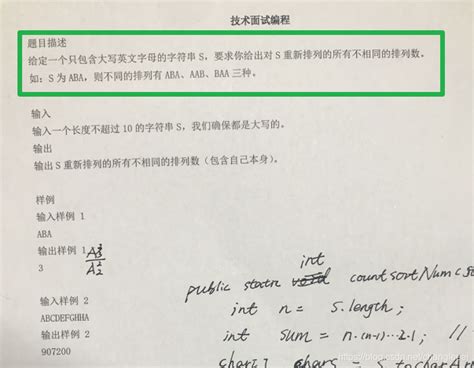 技术面试编程
题目描述
给定一个只包含大写英文字母的字符串 S，要求你给出对 S 重新排列的所有不相同的排列数。
如：S 为 ABA，则不同的排列有 ABA、AAB、BAA 三种。
输入
输入一个长度不超过 10 的字符串 S，我们确保都是大写的。
输出
输出 S 重新排列的所有不相同的排列数（包含自己本身）。
样例
输入样例 1
ABA
输出样例 1
3
int
public static void countsort/Num c
输入样例 2
int n = s.length;
ABCDEFGHHA
输出样例 2
int sum = n·(n-1)···2·1; //
907200
char[] chars = s.toCharAr